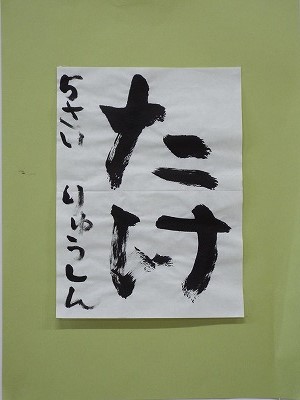 たけ
5さい りゅうしん